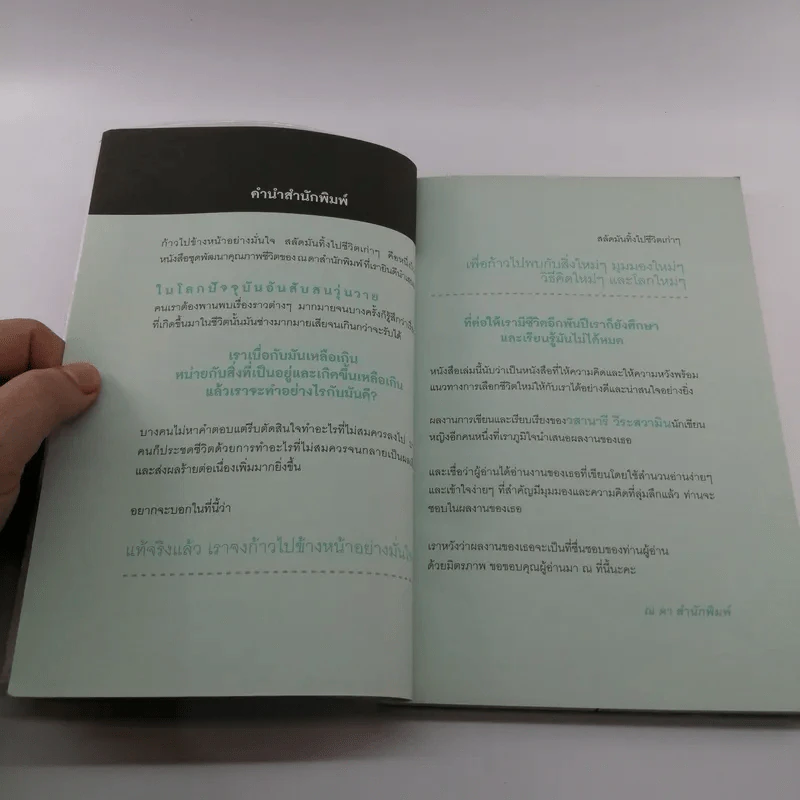 คำนำสำนักพิมพ์
ก้าวไปข้างหน้าอย่างมั่นใจ สลัดมันทิ้งไปชีวิตเก่าๆ คือหนึ่ง
หนังสือชุดพัฒนาคุณภาพชีวิตของ ณ ดาสำนักพิมพ์ที่เรายินดีนำเสนอ
ในโลกปัจจุบันอันสับสนวุ่นวาย
คนเราต้องพานพบเรื่องราวต่างๆ มากมายจนบางครั้งก็รู้สึกว่า
ที่เกิดขึ้นมาในชีวิตนั้นมันช่างมากมายเสียจนเกินกว่าจะรับได้
เราเบื่อกับมันเหลือเกิน
หน่ายกับสิ่งที่เป็นอยู่และเกิดขึ้นเหลือเกิน
แล้วเราจะทำอย่างไรกับมันดี?
บางคนไม่หาคำตอบแต่รีบตัดสินใจทำอะไรที่ไม่สมควรลงไป
คนก็ประชดชีวิตด้วยการทำอะไรที่ไม่สมควรจนกลายเป็น
และส่งผลร้ายต่อเนื่องเพิ่มมากยิ่งขึ้น
อยากจะบอกในที่นี้ว่า
แท้จริงแล้ว เราจงก้าวไปข้างหน้าอย่างมั่นใจ
สลัดมันทิ้งไปชีวิตเก่าๆ
เพื่อก้าวไปพบกับสิ่งใหม่ๆ มุมมองใหม่ๆ
วิธีคิดใหม่ๆ และโลกใหม่ๆ
ที่ต่อให้เรามีชีวิตอีกพันปีเราก็ยังศึกษา
และเรียนรู้มันไม่ได้หมด
หนังสือเล่มนี้นับว่าเป็นหนังสือที่ให้ความคิดและให้ความหวังพร้อม
แนวทางการเลือกชีวิตใหม่ให้กับเราได้อย่างดีและน่าสนใจอย่างยิ่ง
ผลงานการเขียนและเรียบเรียงของวสานารี วีระสวามินนักเขียน
หญิงอีกคนหนึ่งที่เราภูมิใจนำเสนอผลงานของเธอ
และเชื่อว่าผู้อ่านได้อ่านงานของเธอที่เขียนโดยใช้สำนวนอ่านง่ายๆ
และเข้าใจง่ายๆ ที่สำคัญมีมุมมองและความคิดที่ลุ่มลึกแล้ว ท่านจะ
ชอบในผลงานของเธอ
เราหวังว่าผลงานของเธอจะเป็นที่ชื่นชอบของท่านผู้อ่าน
ด้วยมิตรภาพ ขอขอบคุณผู้อ่านมา ณ ที่นี้นะคะ
ณ ดา สำนักพิมพ์